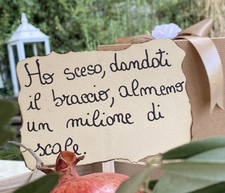 Ho sceso, dandoti
il braccio, almeno
un milione di
scale.